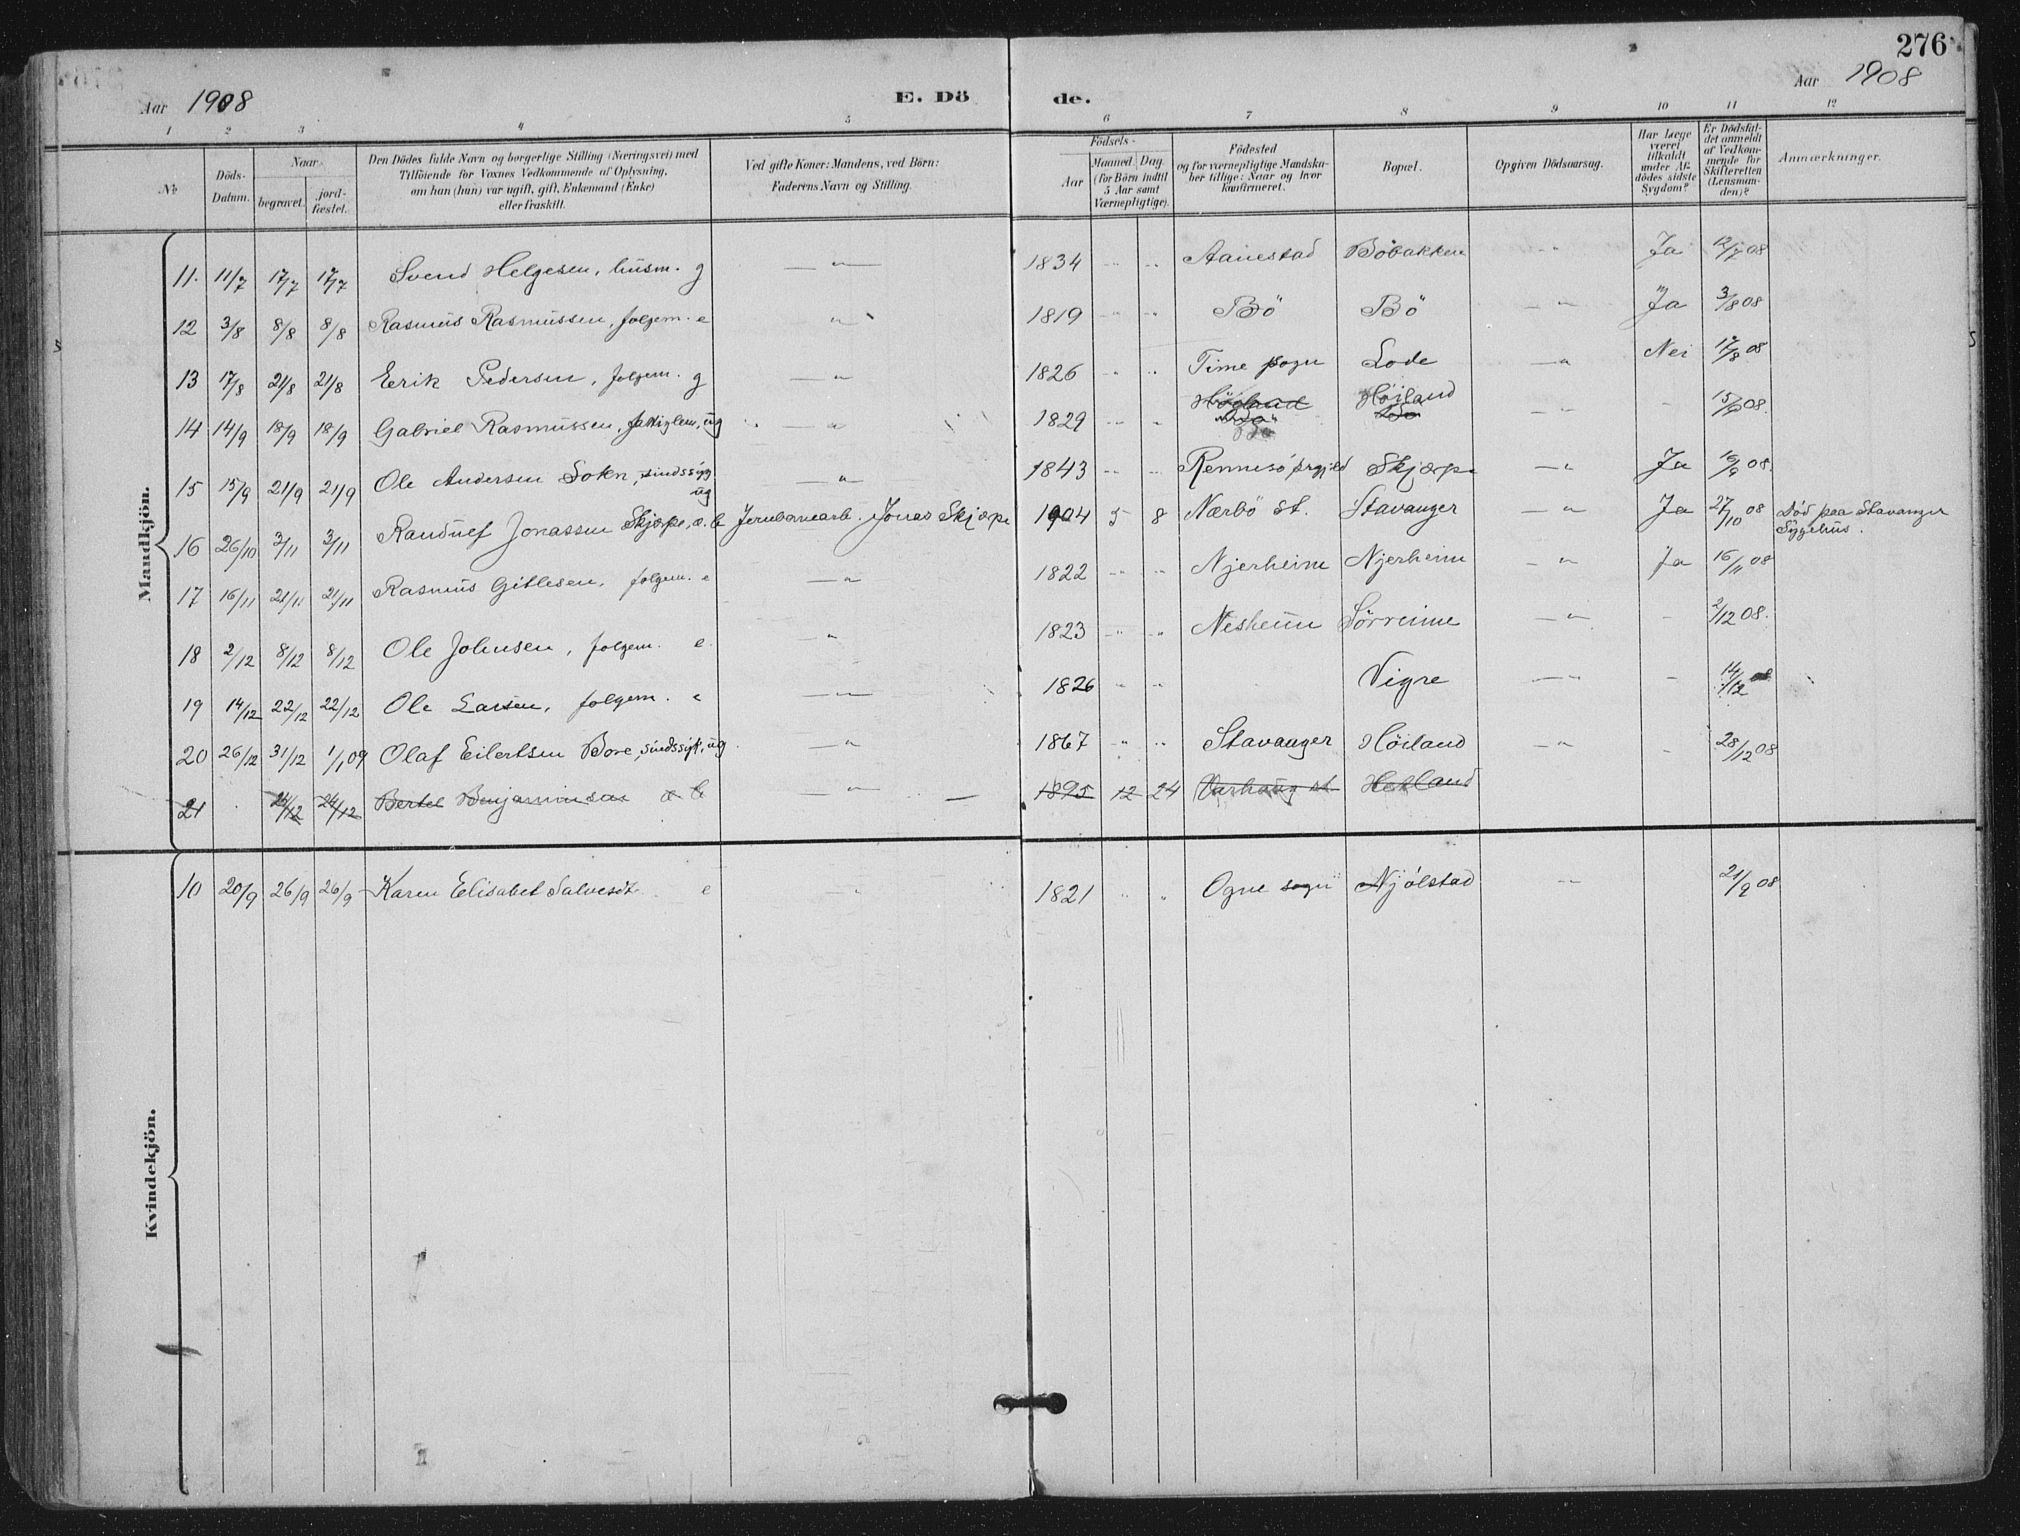 276
Aar 1908 E. Dö de. Aar 1908
1 2 3 4 5 6 7 8 9 10 11 12
№ Döds-Datum. Naar begravet. jord-fæstet. Den Dödes fulde Navn og borgerlige Stilling (Næringsvei) med Tilföiende for Voxnes Vedkommende af Oplysning, om han (hun) var ugift, gift, Enkemand (Enke) eller fraskilt. Ved gifte Koner: Mandens, ved Börn: Faderens Navn og Stilling. Födsels- Aar Maaned Dag (for Börn indtil 5 Aar samt Værnepligtige). Födested og for værnepligtige Mandskaber tillige: Naar og hvor konfirmeret. Bopæl. Opgiven Dödsaarsag. Har Læge været tilkaldt under Afdödes sidste Sygdom? Er Dödsfaldet anmeldt af Vedkommende for Skifteretten (Lensmanden)? Anmærkninger.
Mandkjön.
11. 11/7 17/7 17/7 Svend Helgesen, husm. g — " — 1834 " " Aanestad Böbakken " Ja 12/7 08
12 3/8 8/8 8/8 Rasmus Rasmussen, folgem. e " 1819 " " Bö Bö — " Ja 3/8 08
13 17/8 21/8 21/8 Eerik Pedersen, folgem. g — " 1826 " " Time sogn Lode — " Nei 17/8 08
14 14/9 18/9 18/9 Gabriel Rasmussen, fattiglem, ug — " 1829 " " Höiland — " - 15/9 08.
15 15/9 21/9 21/9 Ole Andersen Sokn, sindssyg ug — " 1843 " " Rennesö prgjeld Skjæpe — " Ja 16/9 08.
16 26/10 3/11 3/11 Randulf Jonassen Skjæpe, æ. b Jernbanearb. Jonas Skjæpe 1904 5 8 Nærbö st. Stavanger — " Ja 27/10 08 Död paa Stavanger Sygehus.
17 16/11 21/11 21/11 Rasmus Gitlesen, folgem. e — " 1822 " " Njerheim Njerheim — " Ja 16/11 08
18 2/12 8/12 8/12 Ole Johnsen, folgem. e. — " 1823 " " Nesheim Sörreime — " - 2/12 08.
19 14/12 22/12 22/12 Ole Larsen, folgem. e — " — 1826 " " Vigre — " - 14/12 08
20 26/12 31/12 1/1 09 Olaf Eilertsen Bore, sindssyk, ug — " 1867 " " Stavanger Höiland — " - 28/12 08
21 24/12 24/12 Bertel Benjaminsen æ b — " — 1895 12 24 Varhaug st Hetland
Kvindekjön.
10 20/9 26/9 26/9 Karen Elisabet Salvesdt. e " 1821 " " Ogne sogn Njölstad — " 21/9 08